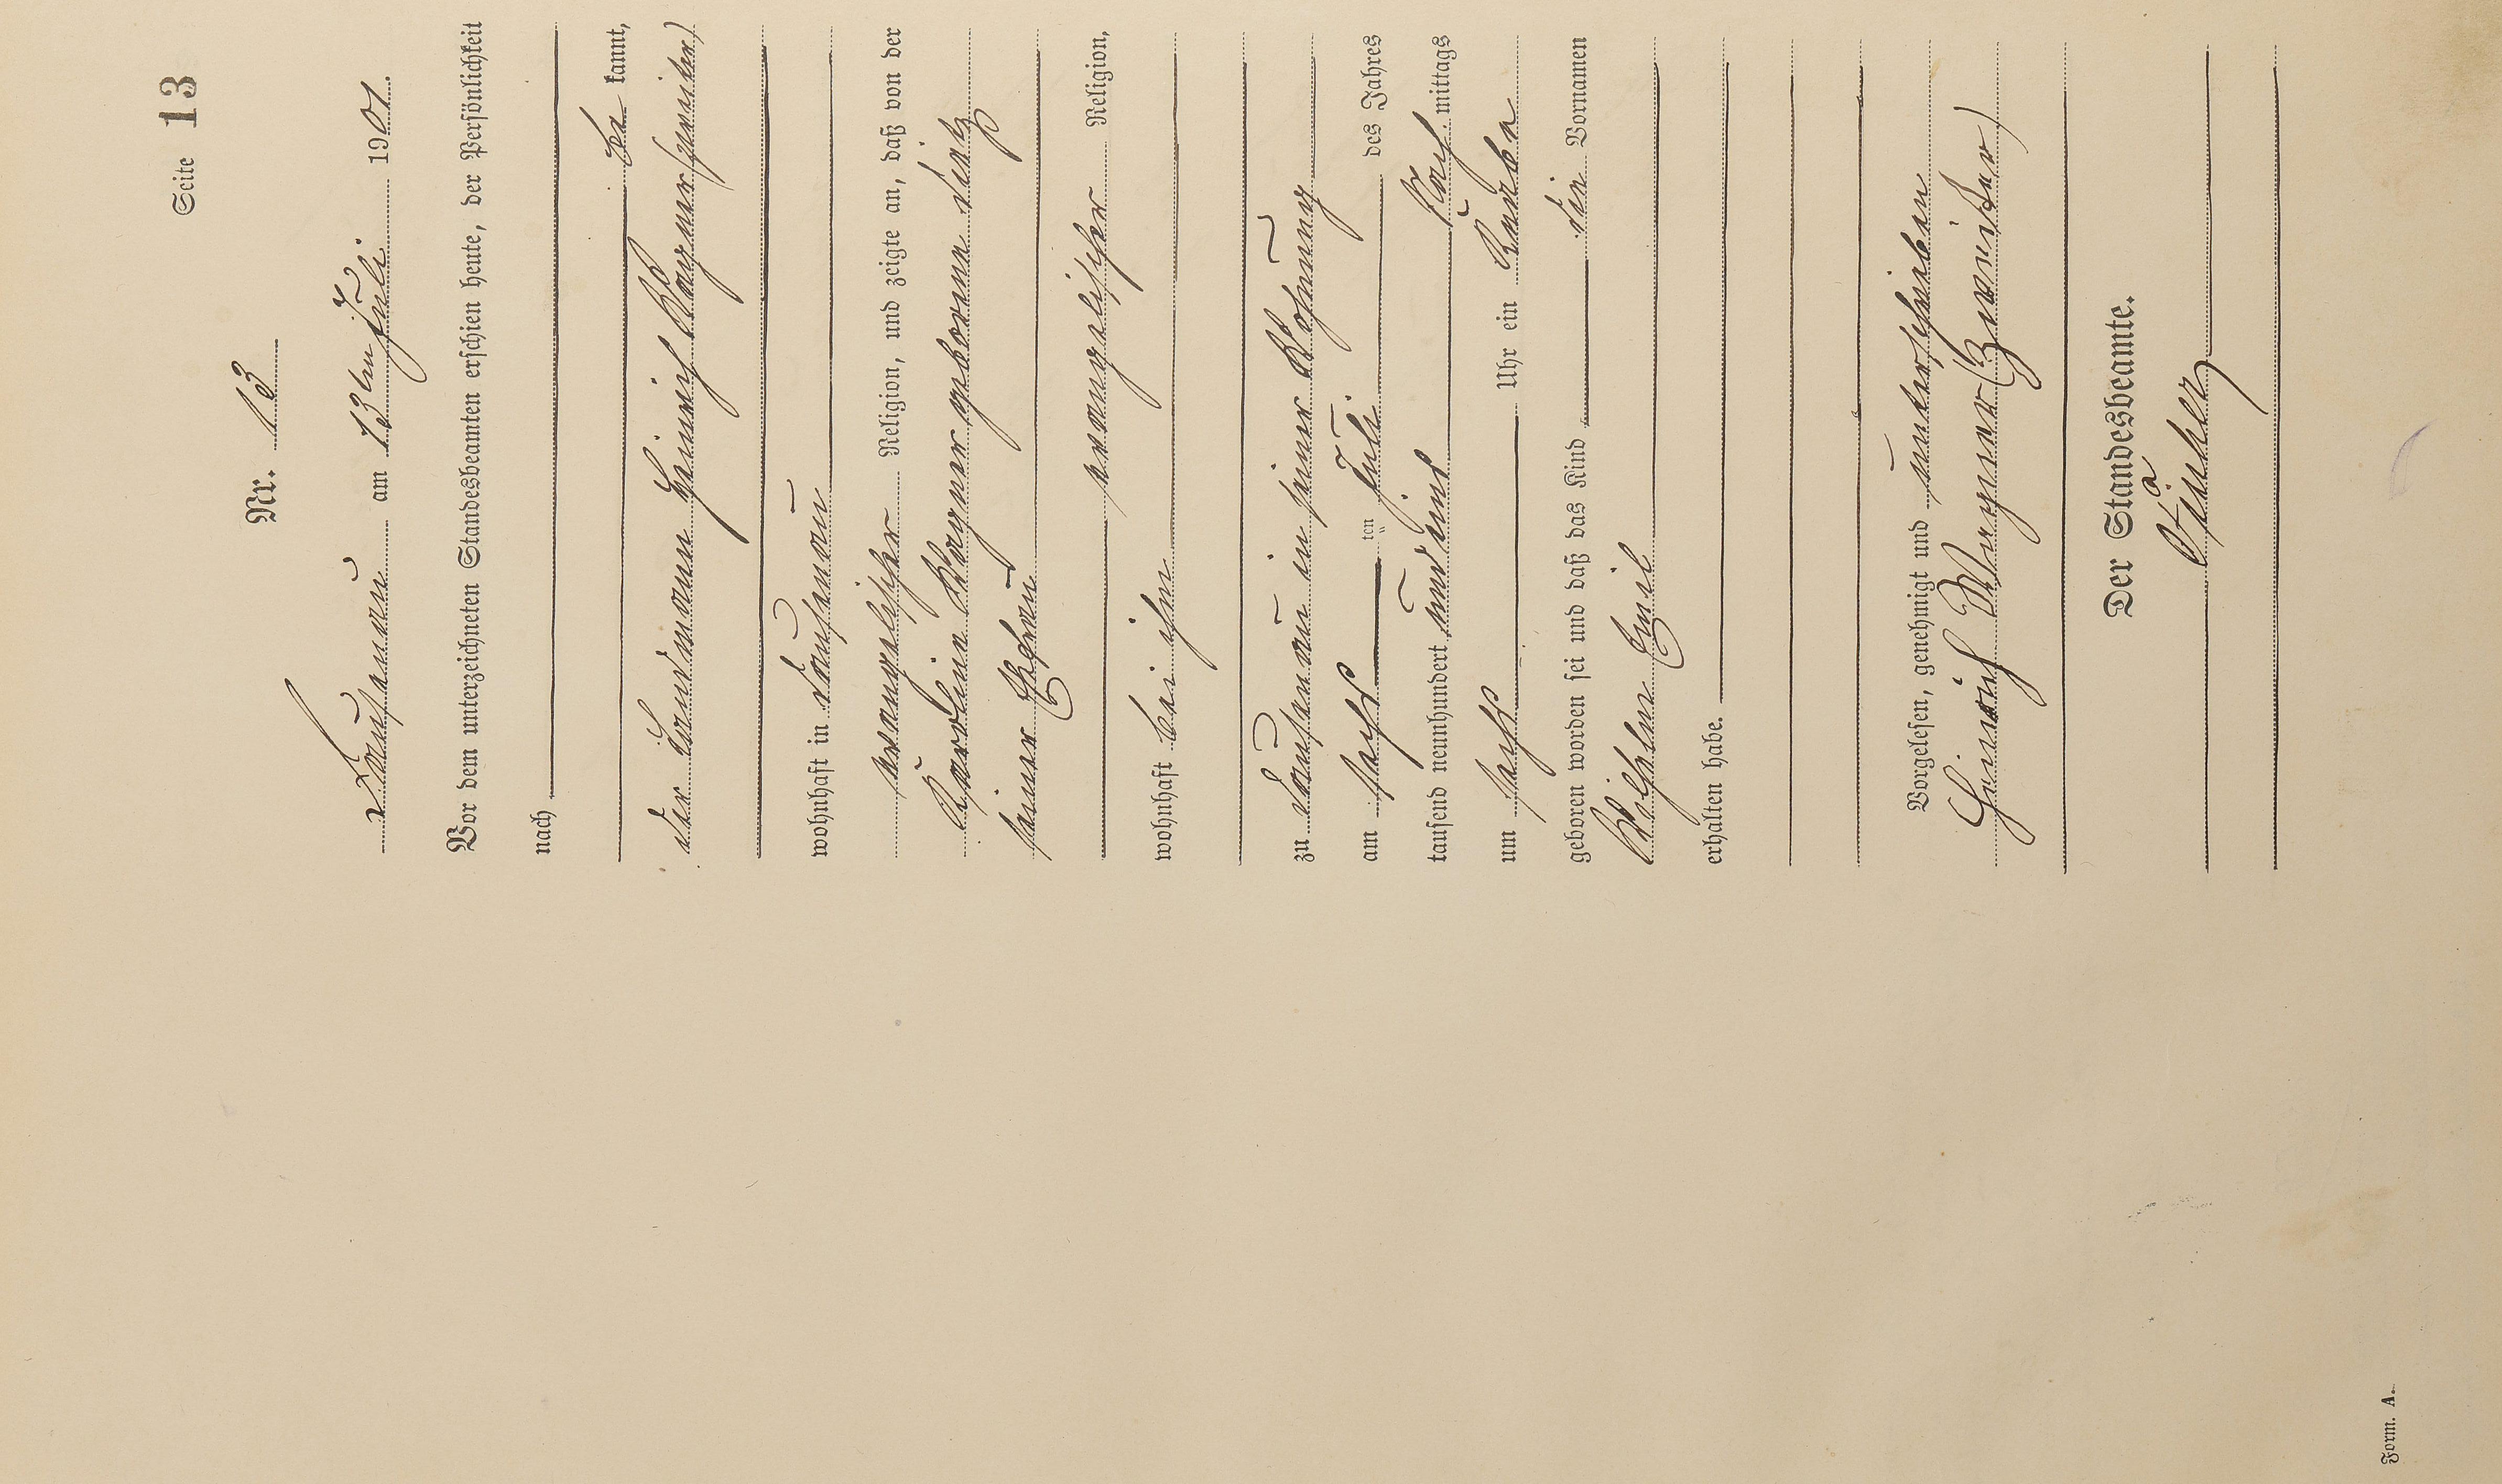 Seite 13
Nr. 13
am 13ten Juli 1901.
Vor dem unterzeichneten Standesbeamten erschien heute, der Persönlichkeit
nach
be kannt,
der Landmann Heinrich Wagner (zweiter)
wohnhaft in
evangelischer Religion, und zeigte an, daß von der
Karoline Wagner geborene
seiner Ehefrau
evangelischer Religion,
wohnhaft bei ihm
zu in seiner Wohnung
am ten Juli des Jahres
tausend neunhundert und eins Nach mittags
um Uhr ein Knabe
geboren worden sei und daß das Kind die Vornamen
Wilhelm Emil
erhalten habe.
Vorgelesen, genehmigt und unterschrieben
Heinrich Wagner (Zweiter)
Der Standesbeamte.
Form. A.